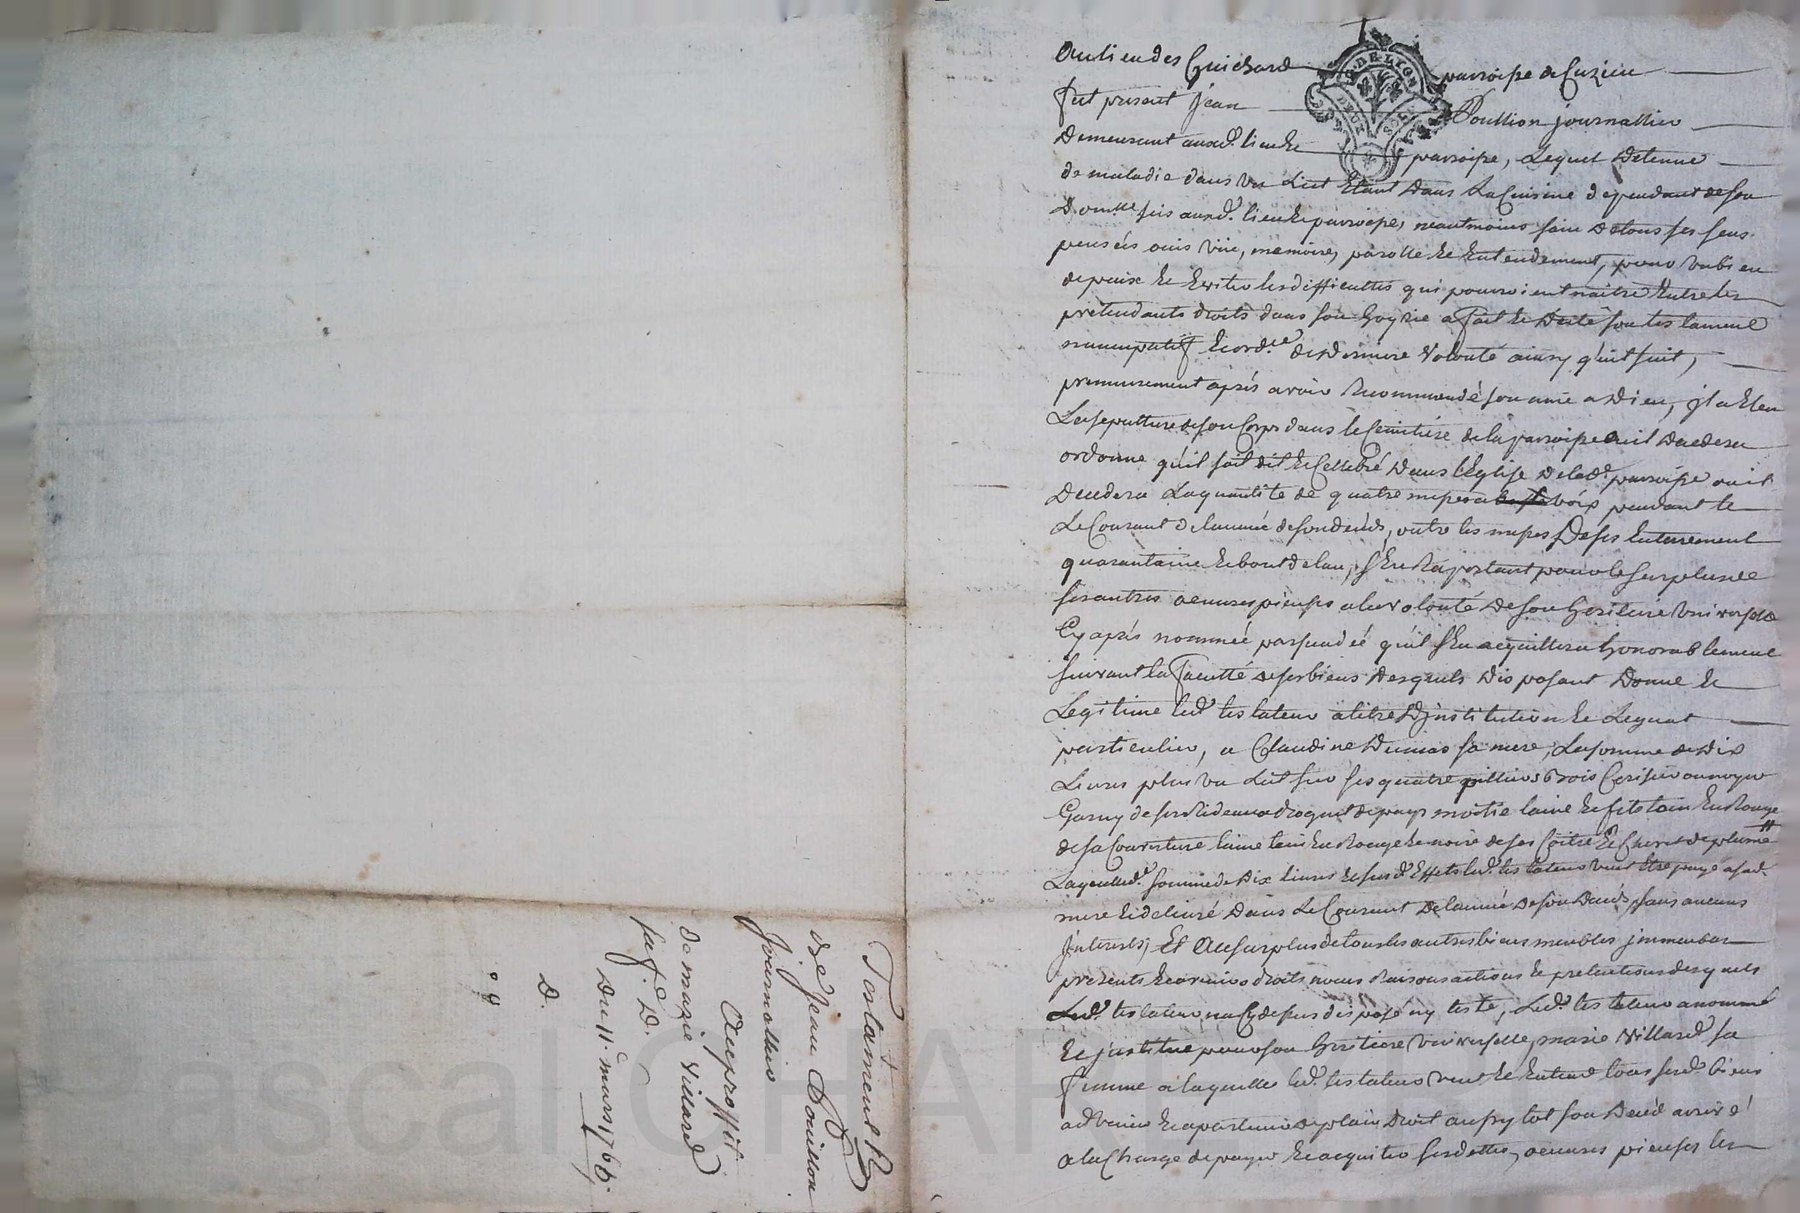 Testament
de Jean Pouillon
Journallier
Au proffit
de marie Villard
sa fe. D.
Du 11. mars 1766.
D.
G. DE LION
DEUX SOLS
Au lieu des Guichard parroisse de Cuzieu
fut present Jean Pouillion journallier
Demeurant aud. lieu et parroisse, Lequel Detenu
de maladie dans un Lict Etant Dans La Cuisine dependant de son
Domlle sis aud. lieu et parroisse, neantmoins sain De tous ses sens
pensées ouis vüe, memoire, parolle et Entendement, pour
de paix et Eviter les difficultés qui pourroient naitre Entre les
pretendants droits dans son hoyrie a fait et Dicté son testament
nuncupatif et ord.ce de derniere Volonté ainsy qu'il suit,
premierement aprés avoir Recommandé son ame a Dieu, Il a Eleu
La sepulture de son Corps dans le Cemitiére de la parroisse ou il Decedera
ordonne qu'il soit dit et Cellebré Dans l'Eglise De lad. parroisse ou il
Decedera La quantité de quatre messes a basse voix pendant le
Le Courant de l'année de son decés, outre les messes De ses Enterrement
quarantaine et bout de l'an, s'En Raportant pour le surplus et
ses autres oeuvres pieuses a la volonté De son heritiere Universelle
Cy aprés nommée persuadé qu'il s'En acquittera honorablement
suivant la Faculté de ses biens Desquels Disposant Donne et
Legitime led. testateur a titre D'institution et Leguat
particulier, a Claudine Dumas sa mere, La somme de Dix
Livres plus un Lict sur ses quatre pilliers bois Cerisier ou noyer
Garny de ses Rideaux droguet de pays moitié laine et fil teint En Rouge
de sa Couverture laine teint En Rouge et noire de ses Coitre et Chevet de plume
Laquelle d. somme de Dix livres et susd. Effets led. testateur veut Etre payé a sad.
mere et delivré Dans Le Courant De l'année De son Decés sans aucuns
Interests, Et Au surplus de tous les autres biens meubles immeubles
presents et avenirs droits noms Raisons actions et pretentions desquels
Led. testateur n'a Cy depus disposé ny testé, Led. testateur a nommé
et institue pour son heritiere Universelle, marie Villard sa
femme a laquelle led. testateur veut et Entend tous sesd. biens
advenir et apartenir de plain Droit aussy tot son Decéd arrivé
a la Charge de payer et acquiter ses dettes, oeuvres pieuses les